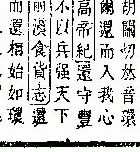 胡關切𠀤音環
爾還而入我心
高帝紀還守豐
不以兵强天下
前漢食貨志還
而還相始如環